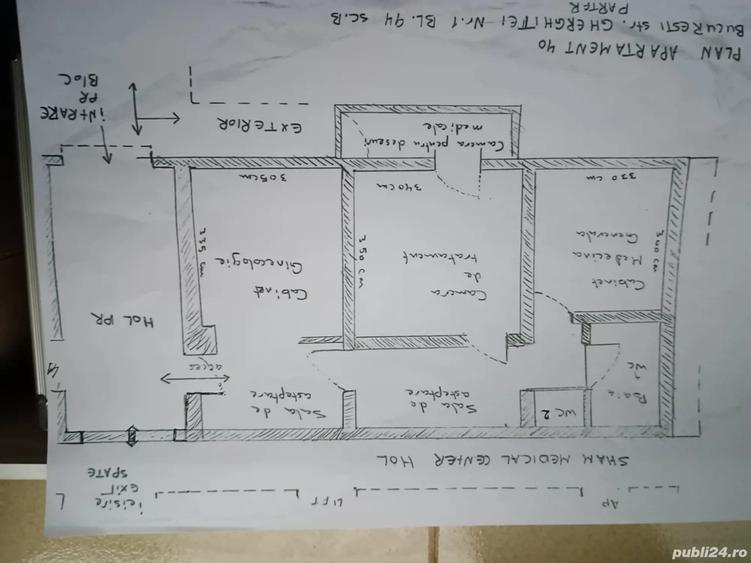 PLAN APARTAMENT 40
BUCURESTI str. GHERGHITEI Nr.1 BL. 94 SC.B
PARTER
iNTRARE
PR
BLOC
EXTERIOR
Camera pentru deseuri
medicale
305cm
340cm
330 cm
335 cm
350 cm
340 cm
Cabinet
Ginecologie
Camera
de
tratament
Cabinet
Medecina
Generala
HOL PR
acces
Sala de
asteptare
Sala de
asteptare
WC 2
Baia
WC
SHAM MEDICAL CENTER HOL
ieisire
EXIT
SPATE
LIFT
AP
L
publi24.ro